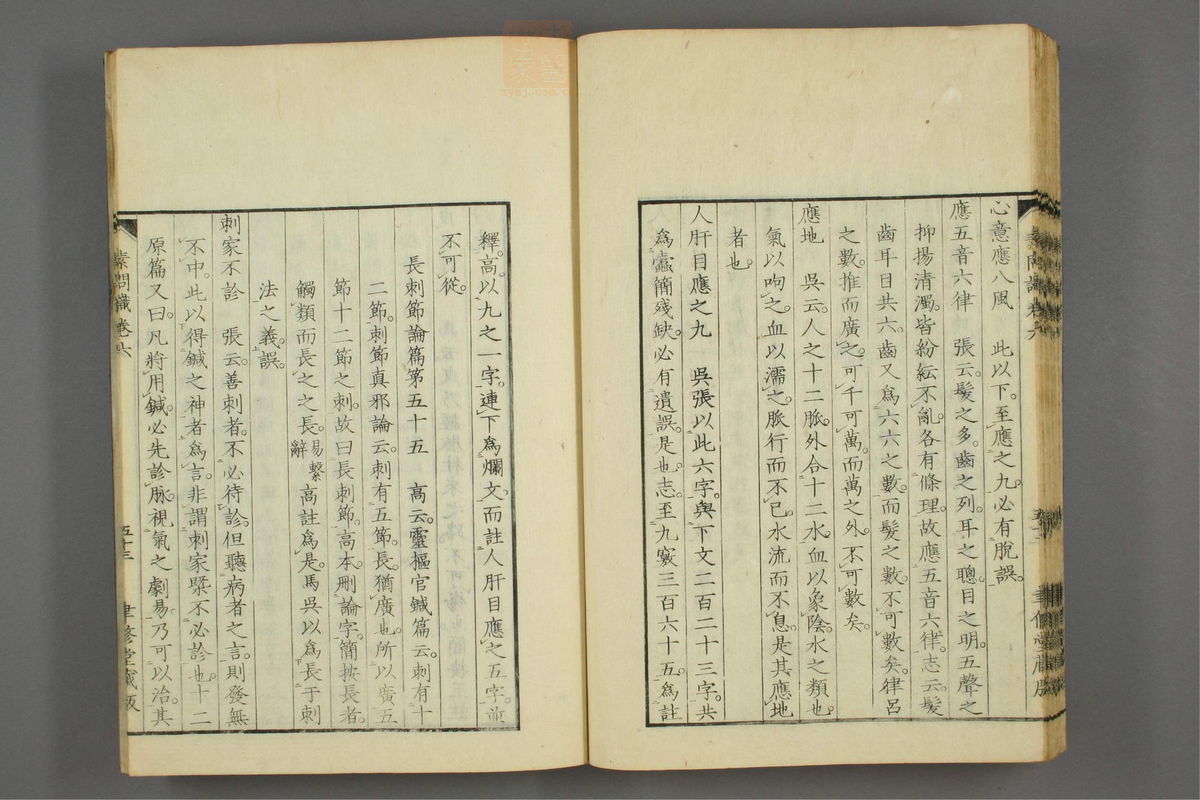 心意應八風　此以下。至應之九。必有脫誤。
應五音六律　張云。髮之多。齒之列。耳之聰。目之明。五聲之
抑揚清濁。皆紛紜不亂。各有條理。故應五音六律。志云。髮
齒耳目共六。齒又爲六六之數。而髮之數。不可數矣。律呂
之數。推而廣之。可千可萬。而萬之外。不可數矣。
應地　吳云。人之十二脈。外合十二水。血以象陰。水之類也。
氣以呴之。血以濡之。脈行而不已。水流而不息。是其應地
者也。
人肝目應之九　吳張以此六字。與下文二百二十三字。共
爲蠹簡殘缺。必有遺誤。是也。志至九竅三百六十五。爲註
釋。高。以九之一字。連下爲爛文。而註人肝目應之五字。並
不可從。
長刺節論篇第五十五　高云。靈樞官鍼篇云。刺有十
二節。刺節真邪論云。刺有五節。長。猶廣也。所以廣五
節十二節之刺。故曰長刺節。高本。刪論字。簡按長者。
觸類而長之之長。易繫辭高註爲是。馬吳以爲長于刺
法之義。誤。
刺家不診　張云。善刺者。不必待診。但聽病者之言。則發無
不中。此以得鍼之神者爲言。非謂刺家槩不必診也。十二
原篇又曰。凡將用鍼。必先診脉。視氣之劇易。乃可以治。其
素問識卷六
五十三
聿修堂藏版